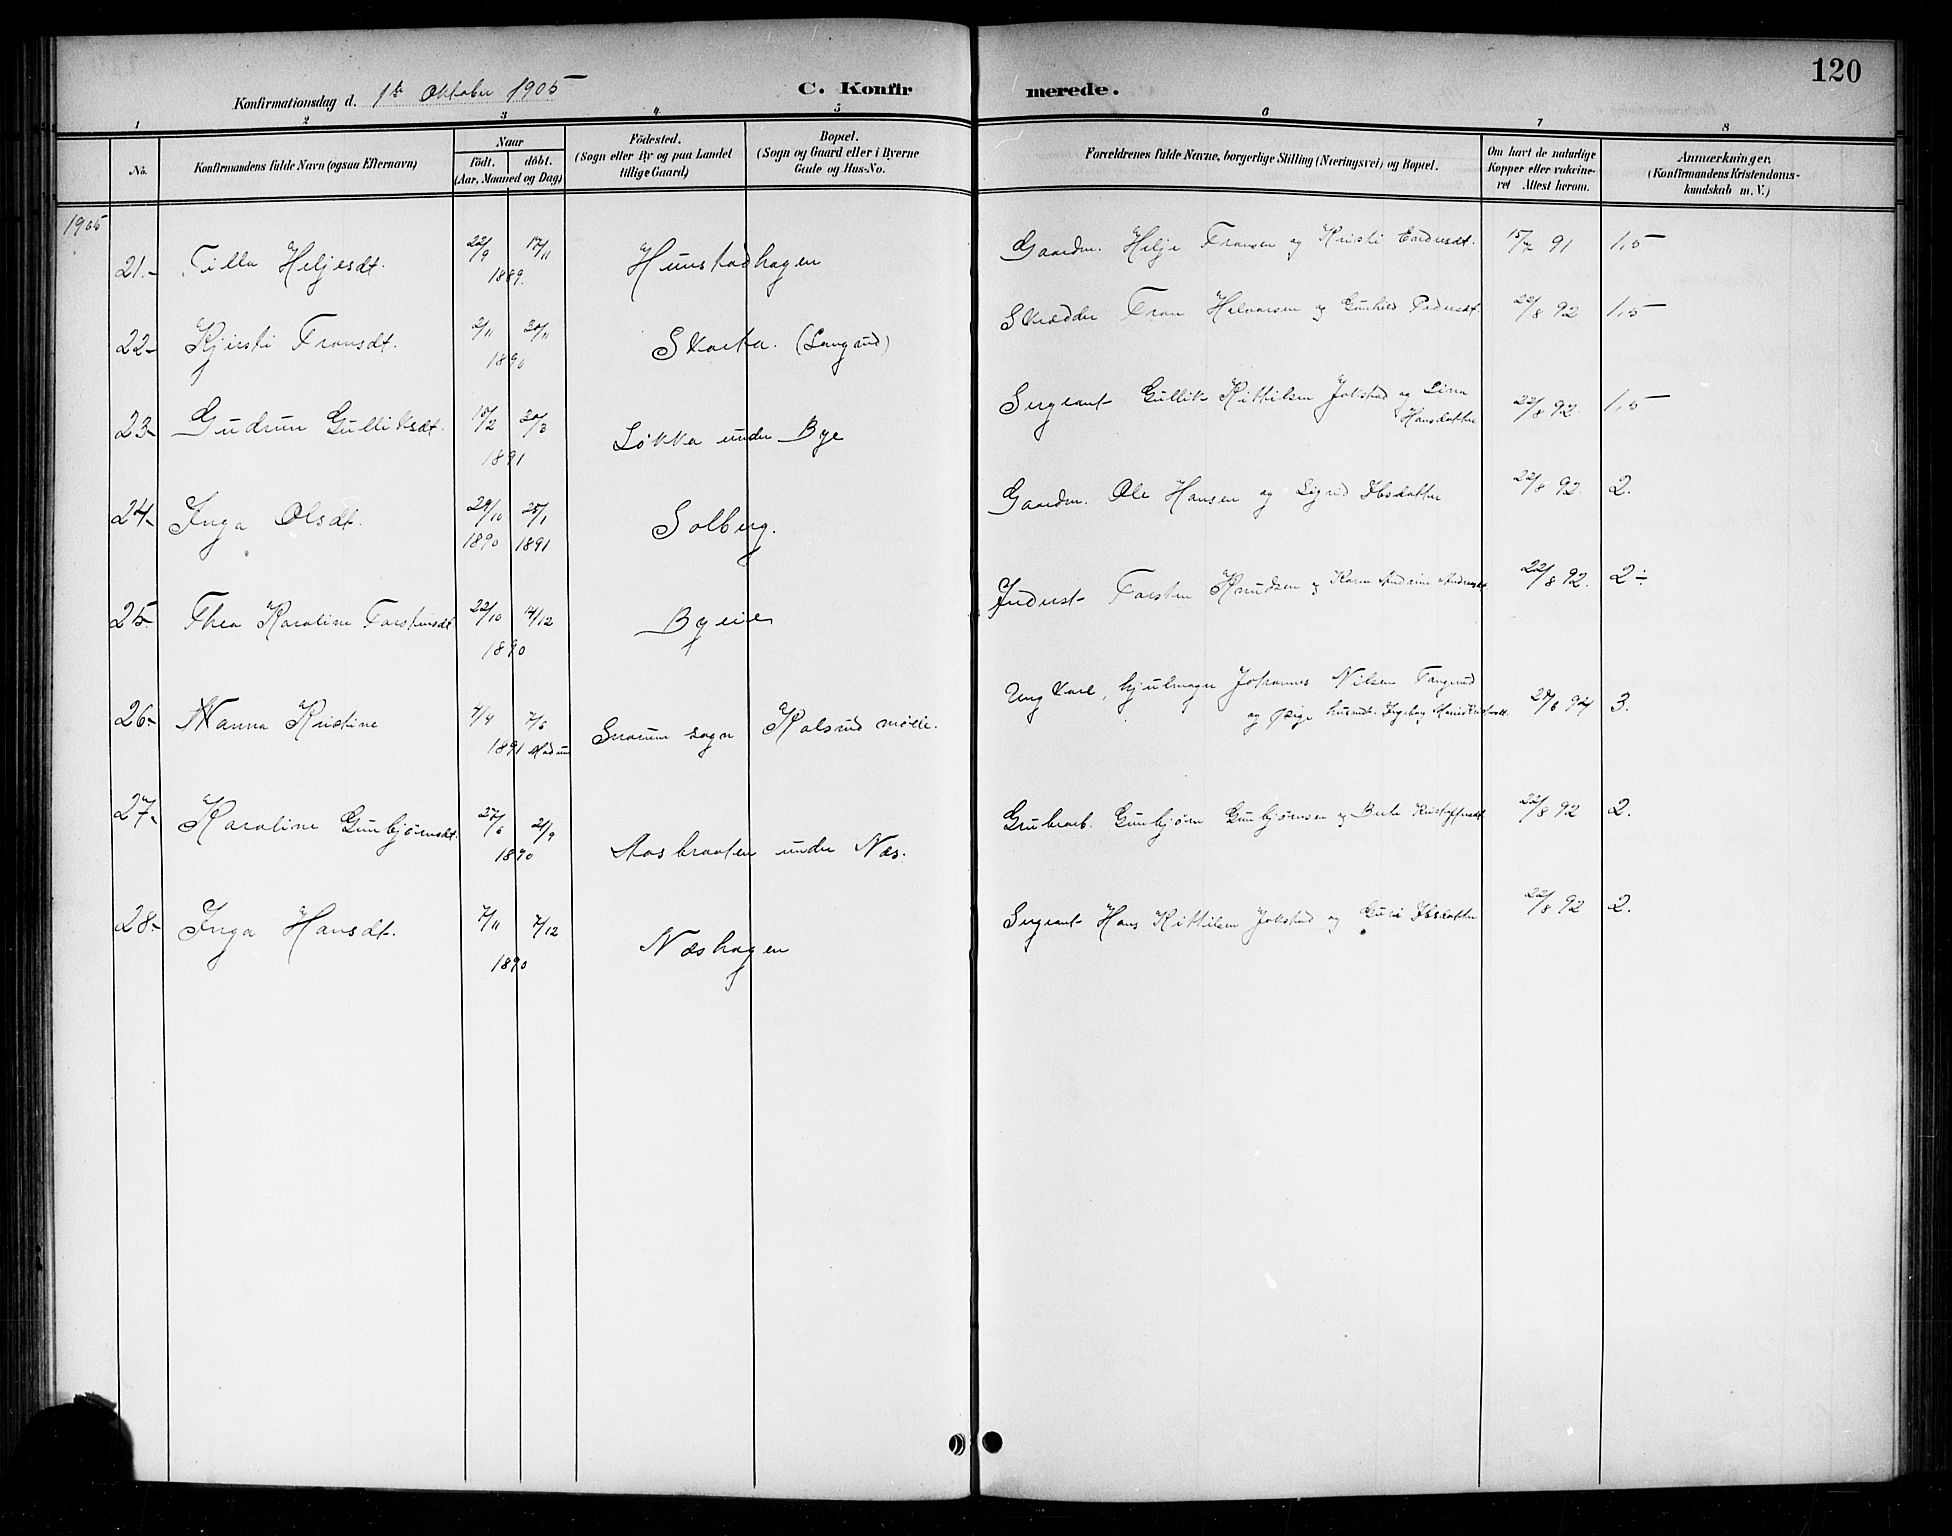 120
Konfirmationsdag d. 1ste Oktober 1905 C. Konfirmerede.
1 2 3 4 5 6 7 8
No. Konfirmandens fulde Navn (ogsaa Efternavn) Naar født. døbt. (Aar, Maaned og Dag) Födested. (Sogn eller By og paa Landet tillige Gaard) Bopæl. (Sogn og Gaard eller i Byerne Gade og Hus-No. Forældrenes fulde Navne, borgerlige Stilling (Næringsvei) og Bopæl. Om havt de naturlige Kopper eller vakcineret Attest herom. Anmærkninger. (Konfirmandens Kristendomskundskab m. V.)
1905
21.- Tilla Heljesdt. 22/9 17/11 1889. Hunstadhagen Gaardm. Helje Fransen og Kristi Endresdt. 15/7 91 1,5
22- Kjersti Fransdt. 2/11 30/11 1890 Skarta. (Langrud) Skrædder Fran Halvorsen og Gunhild Pedersdt. 22/8 92 1,5
23- Gudrun Gulliksdt. 15/2 30/3 1891 Løkka under Bye Sergeant Gullik Kittilsen Jokstad og Lina
Hansdatter 22/8 92. 1,5
24- Inga Olsdt. 29/10 1890 25/1 1891 Solberg. Gaardm. Ole Hansen og Sigrid Ibsdatter 22/8 92. 2.
25- Thea Karoline Torstensdt. 22/10 14/12 1890 Byeie Inderst Torsten Knudsen og Karen Andrine 22/8 92. 2÷
26- Nanna Kristine 7/4 7/6 1891 Modum Snarum sogn Kolsrud mølle. Ungkarl, hjulmager Johannes Nilsen
og pige husmdt. Ingeborg 29/6 94 3.
27- Karoline Gunbjørnsdt. 27/6 21/9 1890 Aasbraaten under Næs. Grubearb. Gunbjørn Gunbjørnsen og Berte Kristoffersdt 22/8 92 2.
28- Inga Hansdt. 7/11 7/12 1890 Næshagen Sergeant Hans Kittilsen Jokstad og Guri Ibsdatter 22/8 92 2.